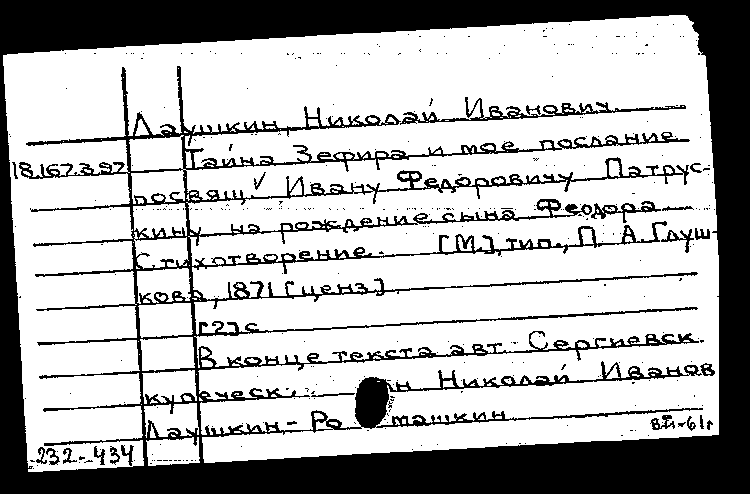 Лаушкин, Николай Иванович.
18.167.3.97 Тайна Зефира и мое послание
посвящ. Ивану Федоровичу Патрус-
кину на рождение сына Феодора
Стихотворение. [М.], тип., П. А. Глуш-
кова, 1871 [ценз.]
[2] с
В конце текста авт.: Сергиевск.
купеческ. н Николай Иванов
Лаушкин-Ро ташкин
232-434